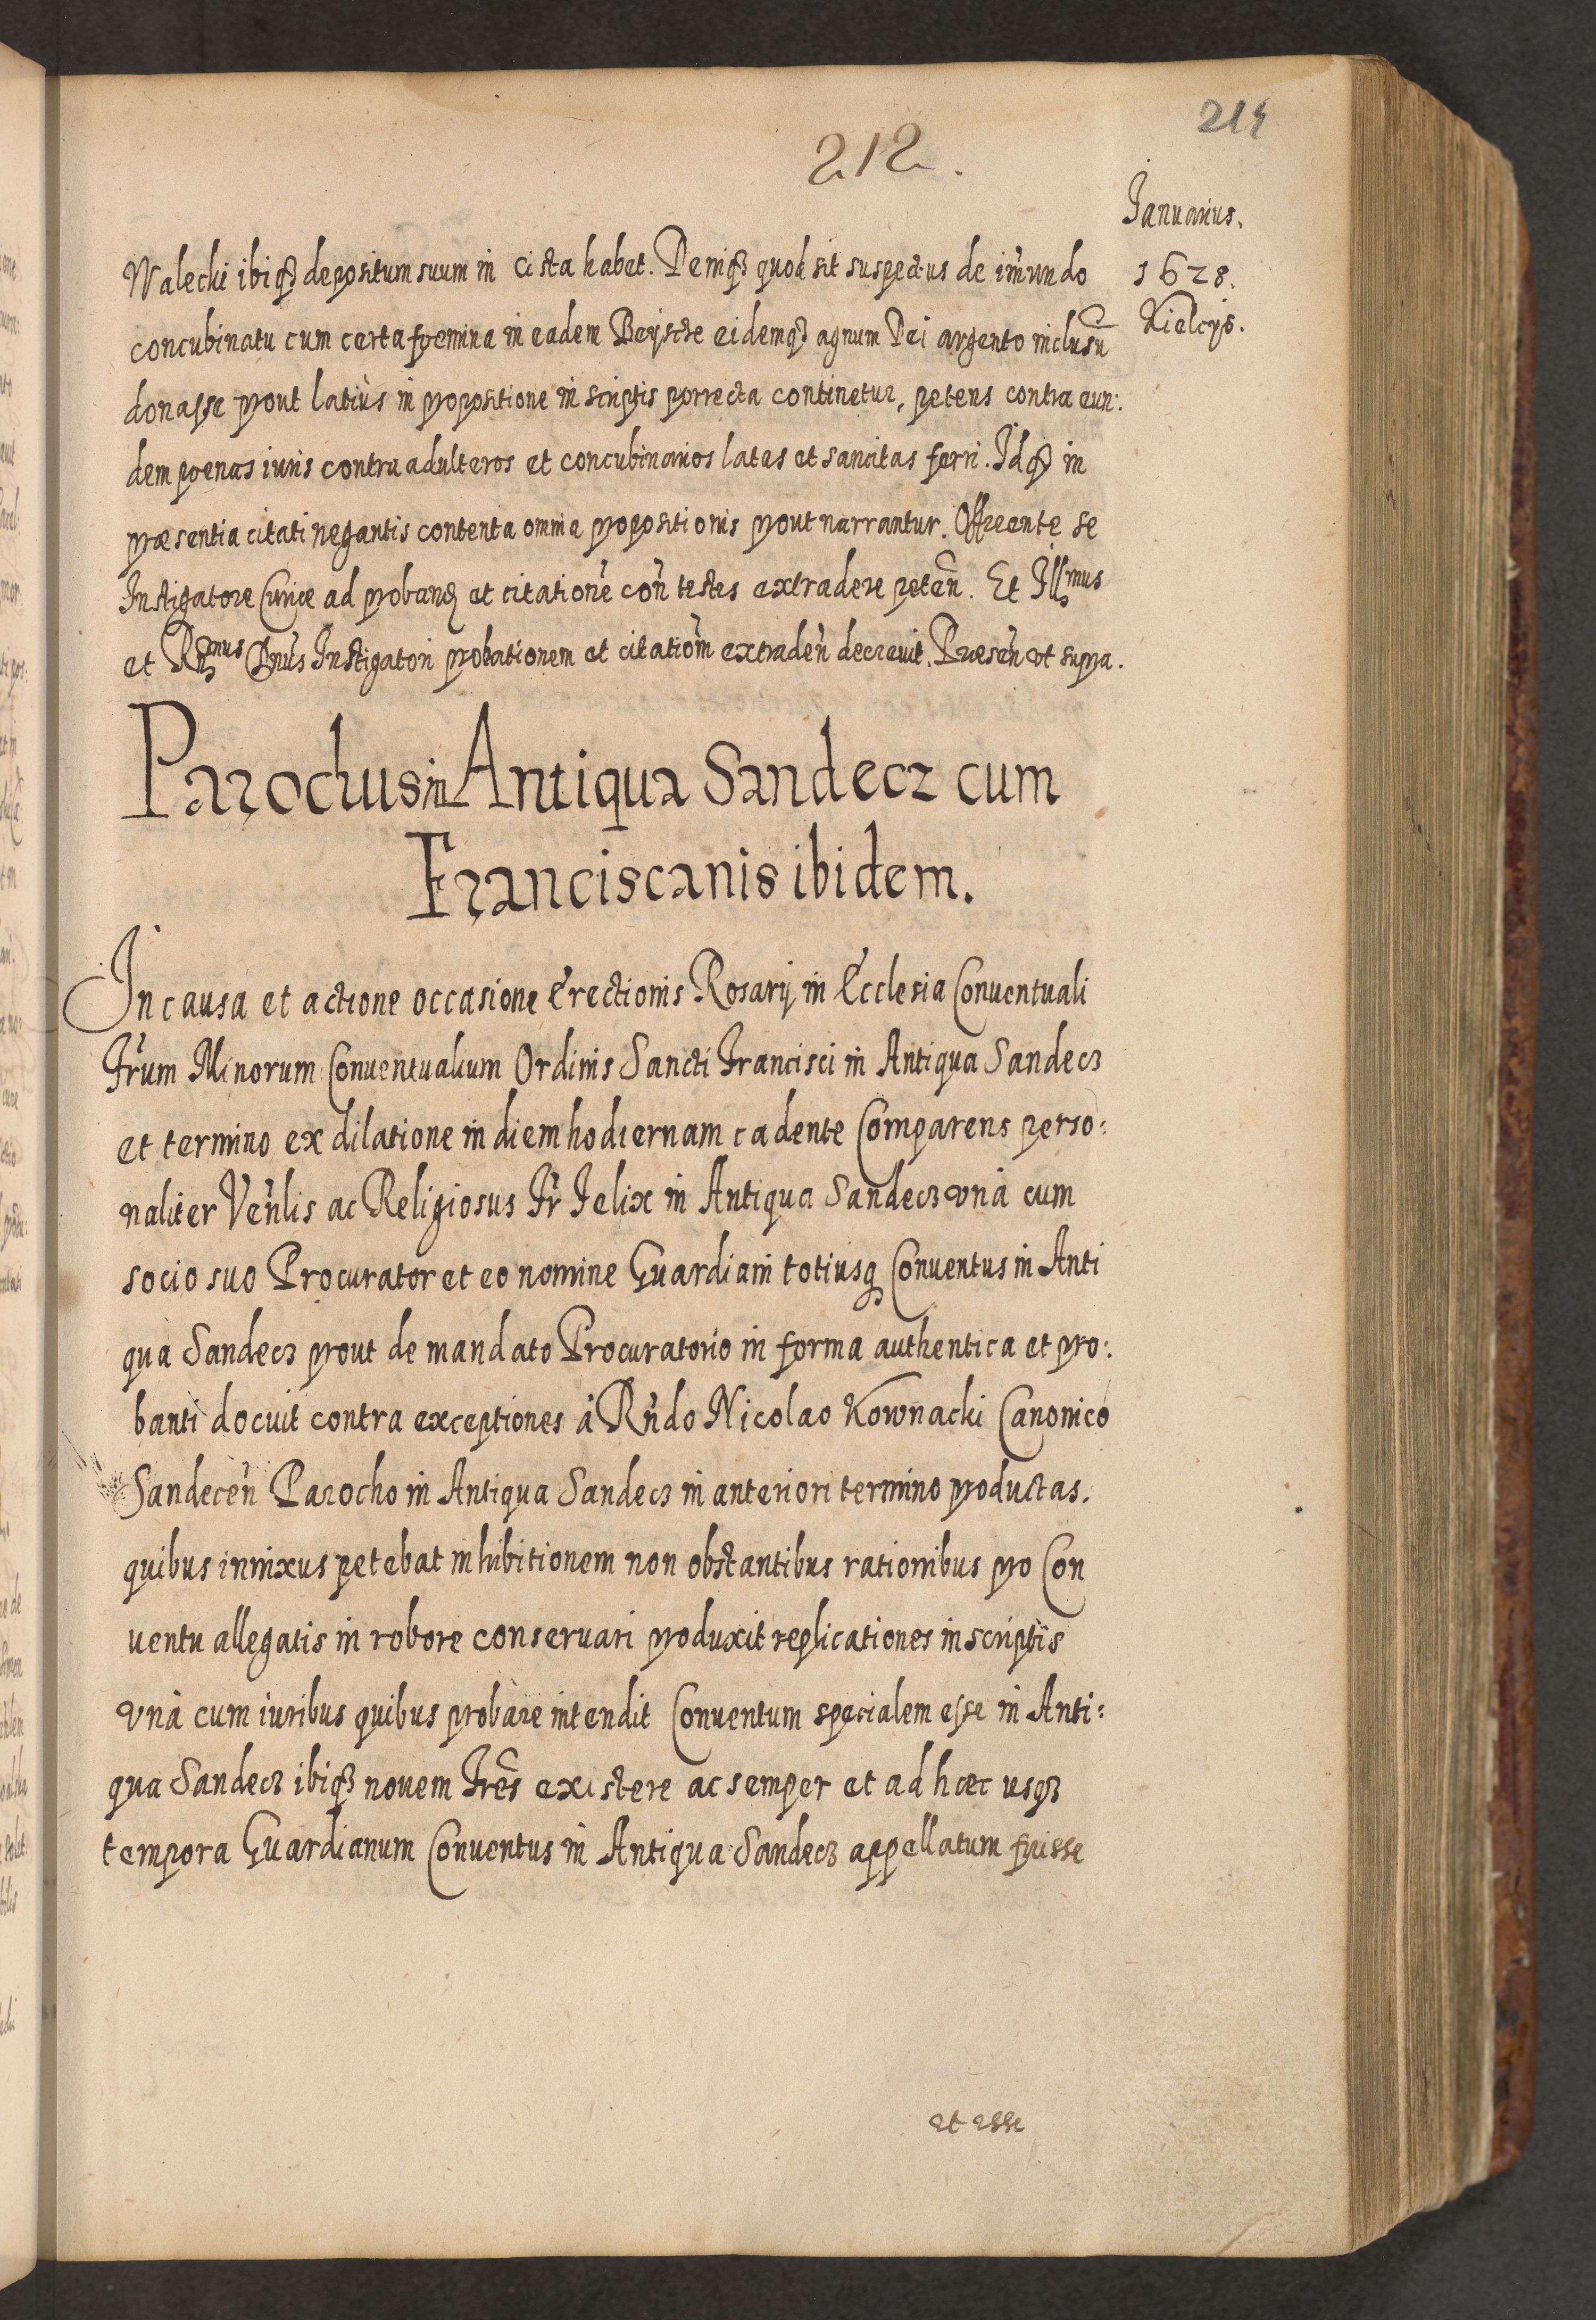 214
212.
Januarius.
1628.
Kielcÿs.
Walecki ibiqꝫ depositum suum in Cista habet. Deniqꝫ quod sit suspectus de im̃undo
concubinatu cum certa foemina in eadem Beÿscze eidemqꝫ agnum Dei argento inclusũ
donasse prout latiùs in propositione in scriptis porrecta continetur, petens contra eun:
dem poenas iuris contra adulteros et concubinarios latas et sancitas ferri. Idqꝫ in
praesentia citati negantis contenta omnia propositionis prout narrantur. Offerente se
Instigatore Curiae ad proband et citationẽ coñ testes extradere peteñ. Et Illmus
et Rñmus Dñus Instigatori probationem et citatioñm extradeñ decrevit. Praeseñ vt supra.
Parochus in Antiqua Sandecz cum
Franciscanis ibidem.
In causa et actione occasione Erectionis Rosarij in Ecclesia Conuentuali
Frum Minorum Conuentualium Ordinis Sancti Francisci in Antiqua Sandecz
et termino ex dilatione in diem hodiernam cadente Comparens perso:
naliter Veñlis ac Religiosus Fr Felix in Antiqua Sandecz vnà cum
socio suo Procurator et eo nomine Guardiani totiusq Conuentus in Anti
qua Sandecz prout de mandato Procuratorio in forma authentica et pro:
banti docuit contra exceptiones à Rñdo Nicolao Kownacki Canonico
Sandeceñ Parocho in Antiqua Sandecz in anteriori termino productas.
quibus innixus petebat inhibitionem non obstantibus rationibus pro Con
uentu allegatis in robore conseruari produxit replicationes in scriptis
vnà cum iuribus quibus probare intendit Conuentum specialem esse in Anti:
qua Sandecz ibiqꝫ nouem Fres existere ac semper et ad haec usqꝫ
tempora Guardianum Conuentus in Antiqua Sandecz appellatum fuisse
et esse